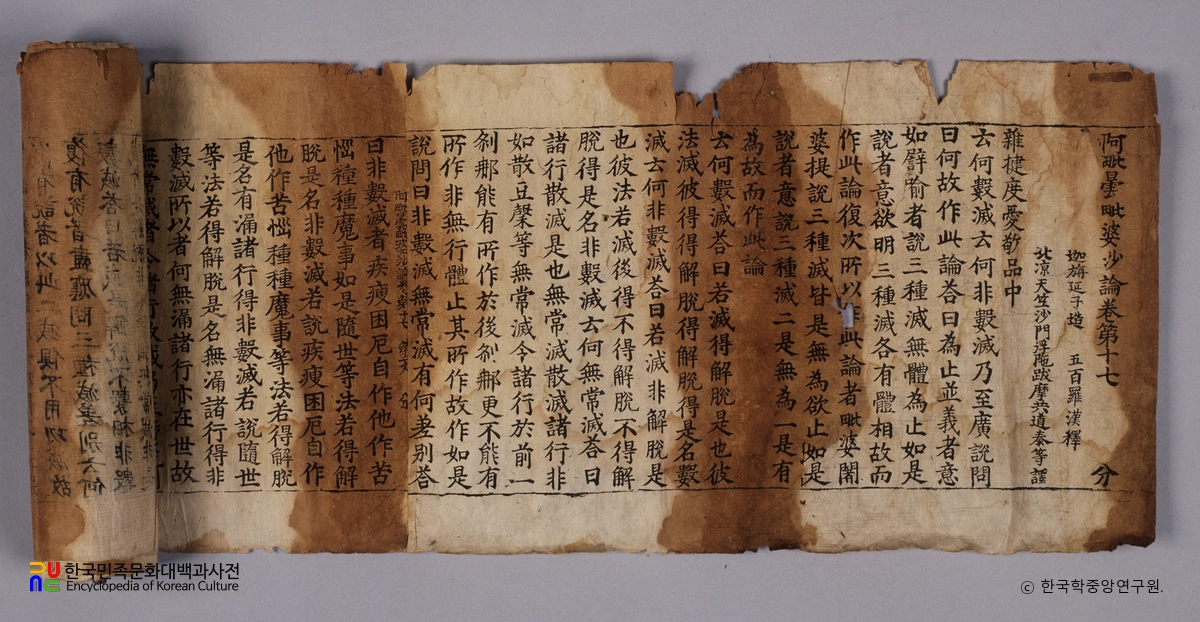 阿毗曇毗婆沙論卷第十七 分
迦旃延子造 五百羅漢釋
北涼天竺沙門浮陁跋摩共道泰等譯
雜揵度愛敬品中
云何數滅云何非數滅乃至廣說問
曰何故作此論荅曰為止並義者意
如譬喻者說三種滅無體為止如是
說者意欲明三種滅各有體相故而
作此論復次所以作此論者毗婆闍
婆提說三種滅皆是無為欲止如是
說者意說三種滅二是無為一是有
為故而作此論
云何數滅荅曰若滅得解脫是也彼
法滅彼得得解脫得解脫得是名數
滅云何非數滅荅曰若滅非解脫是
也彼法若滅後得不得解脫不得解
脫得是名非數滅云何無常滅荅曰
諸行散滅是也無常滅散滅諸行非
如散豆聚等無常滅令諸行於前一
剎那能有所作於後剎那更不能有
所作非無行體止其所作故作如是
說問曰非數滅無常滅有何差别荅
曰非數滅者疾瘦困厄自作他作苦
惱種種魔事如是隨世等法若得解
脫是名非數滅若說疾瘦困厄自作
他作苦惱種種魔事等法若得解脫
是名有漏諸行得非數滅若說隨世
等法若得解脫是名無漏諸行得非
數滅所以者何無漏諸行亦在世故
한국민족문화대백과사전
Encyclopedia of Korean Culture
ⓒ 한국학중앙연구원.